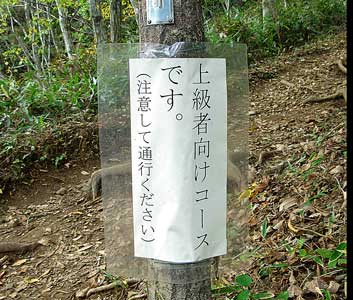 上級者向けコース
です。
(注意して通行ください)